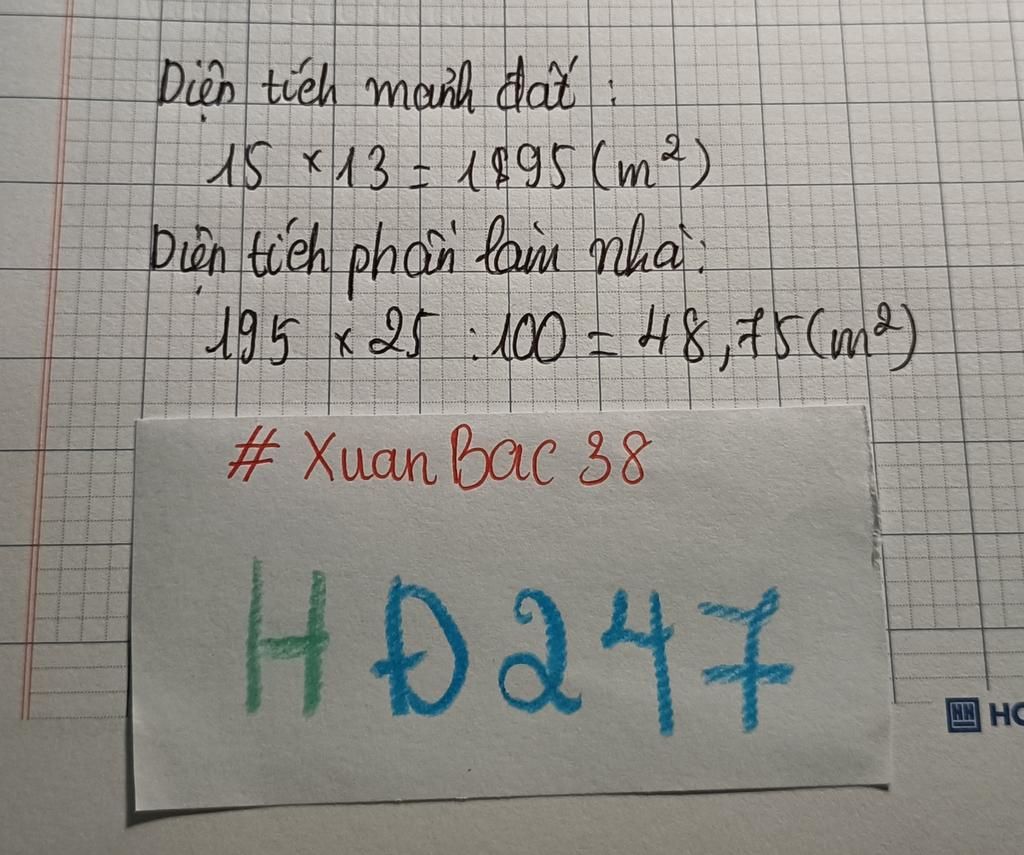 Diện tích mảnh đất :
15 × 13 = 1895 (m²)
Diện tích phần làm nhà:
195 × 25 : 100 = 48,75 (m²)
# XuanBac 38
HĐ247
HO